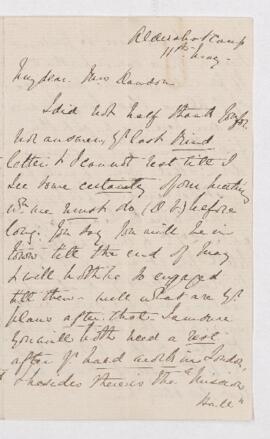 Aldershot Camp
11th May
My dear Mrs Dawson
I did not half thank you for
nor answer yr last kind
letter & I cannot rest till I
see some certainty of our meeting
wh. we must do (D.V.) before
long. You say you will be in
town till the end of May
& will both be so engaged
till then – well what are yr
plans after that I am sure
you will both need a rest
after yr hard work in London,
& besides there is the "Mission
Hall"